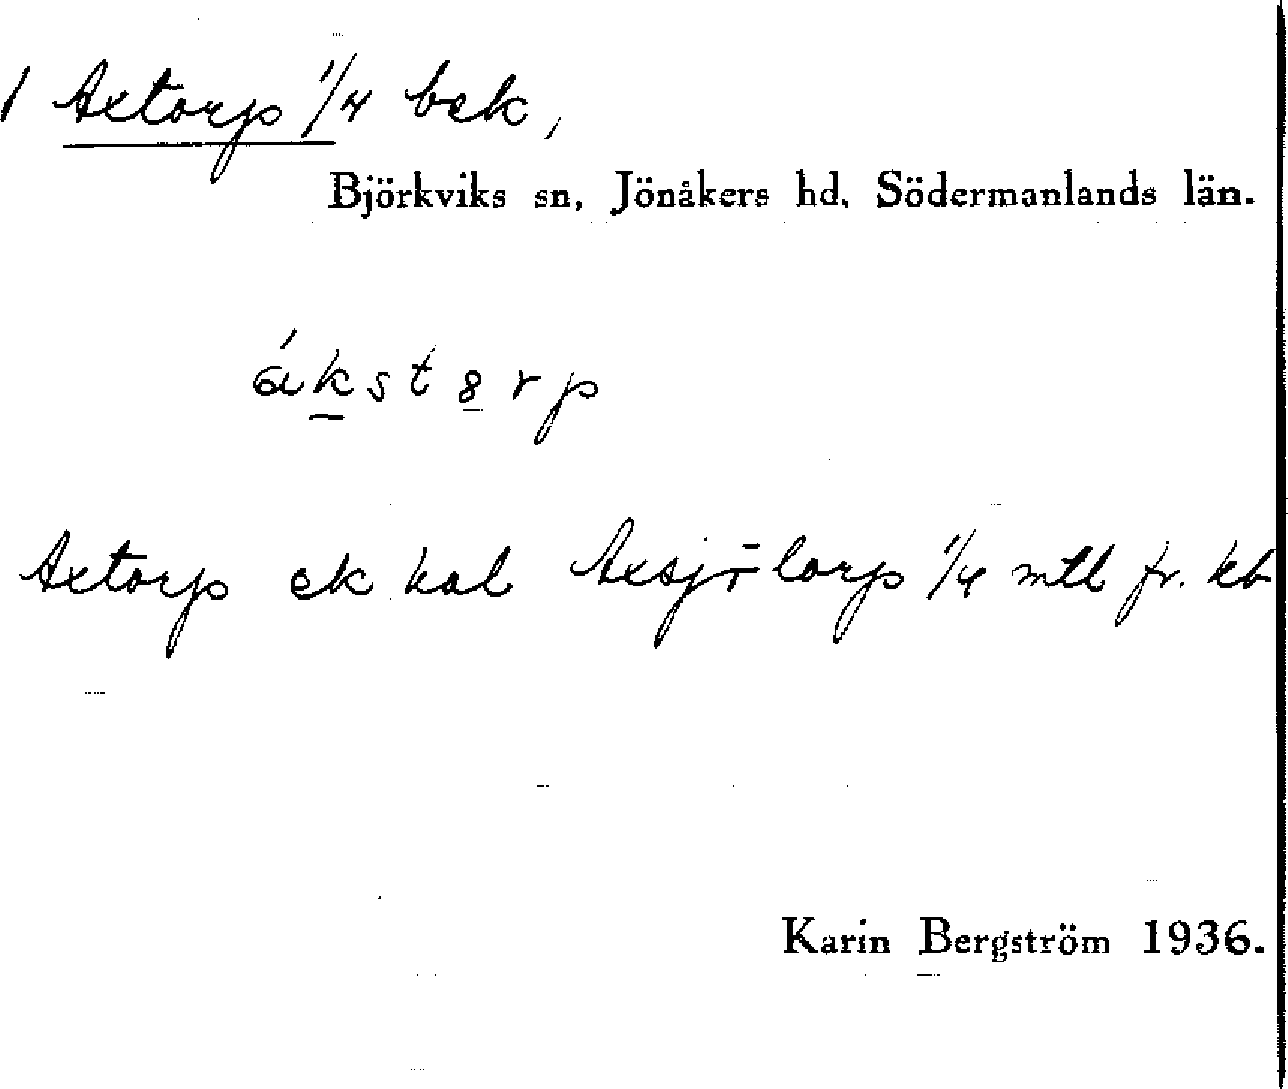 1 Axtorp 1/4 bek,
Björkviks sn, Jönåkers hd, Södermanlands län.
ákst8rp
Axtorp ek kal Axsjötorp 1/4 mtl fr. kb
Karin Bergström 1936.